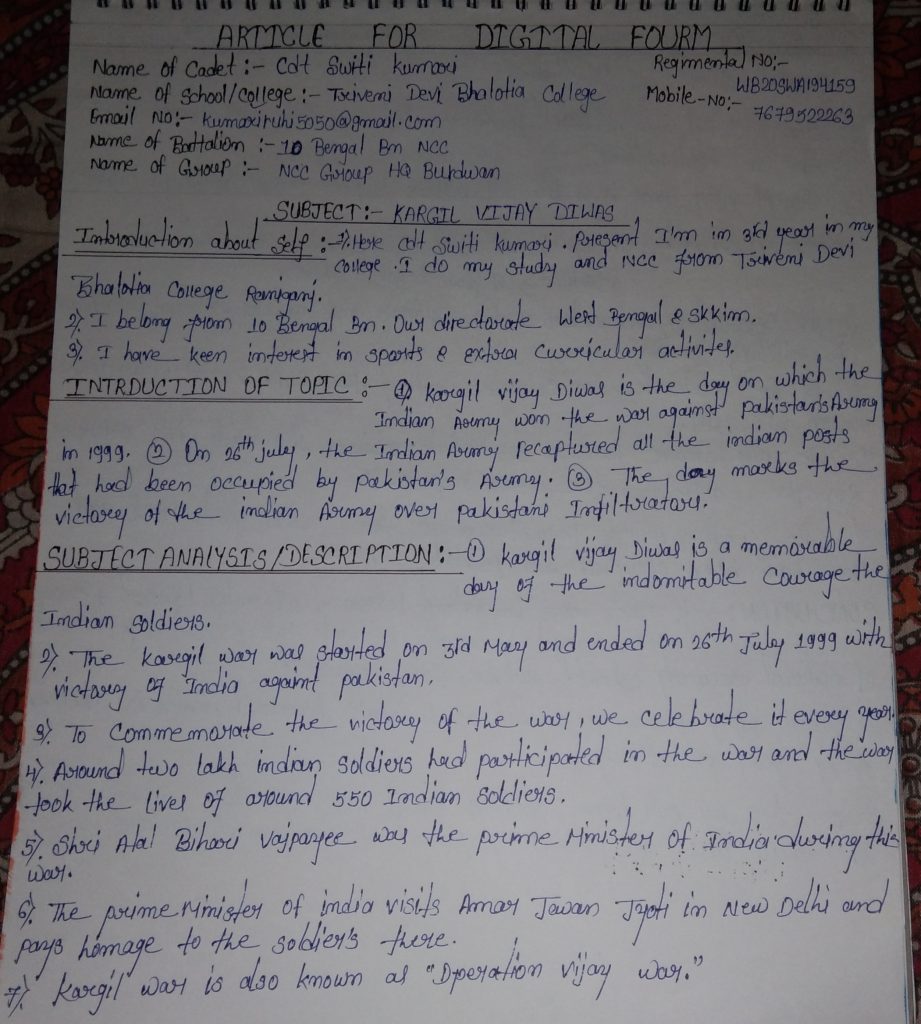 ARTICLE FOR DIGITAL FOURM
Name of Cadet :- Cdt Switi Kumari
Regimental No:-
WB20SWA194159
Name of School/College :- Triveni Devi Bhalotia College
Mobile-No:-
7679522263
Email No:- kumariruhi5050@gmail.com
Name of Battalion :- 10 Bengal Bn NCC
Name of Group :- NCC Group HQ Burdwan
SUBJECT:- KARGIL VIJAY DIWAS
Introduction about Self :- 1) Here Cdt Switi Kumari. Present I'm in 3rd year in my
College. I do my study and NCC from Triveni Devi
Bhalotia College Raniganj.
2) I belong from 10 Bengal Bn. Our directorate West Bengal & Skkim.
3) I have keen interest in sports & extra curricular activites.
INTRDUCTION OF TOPIC :- ① Kargil vijay Diwas is the day on which the
Indian Army won the war against pakistan's Army
in 1999. ② On 26th july, the Indian Army recaptured all the indian posts
that had been occupied by pakistan's Army. ③ The day marks the
victory of the indian Army over pakistani Infiltrators.
SUBJECT ANALYSIS/DESCRIPTION :- ① Kargil vijay Diwas is a memorable
day of the indomitable Courage the
Indian soldiers.
2) The Kargil war was started on 3rd May and ended on 26th July 1999 with
victory of India againt pakistan.
3) To Commemorate the victory of the war, we celebrate it every year.
4) Around two lakh indian soldiers had participated in the war and the war
took the lives of around 550 Indian soldiers.
5) Shri Atal Bihari Vajpayee was the prime Minister of India during this
war.
6) The prime Minister of india visits Amar Jawan Jyoti in New Delhi and
pays homage to the soldier's there.
7) Kargil war is also known as "Operation vijay war."